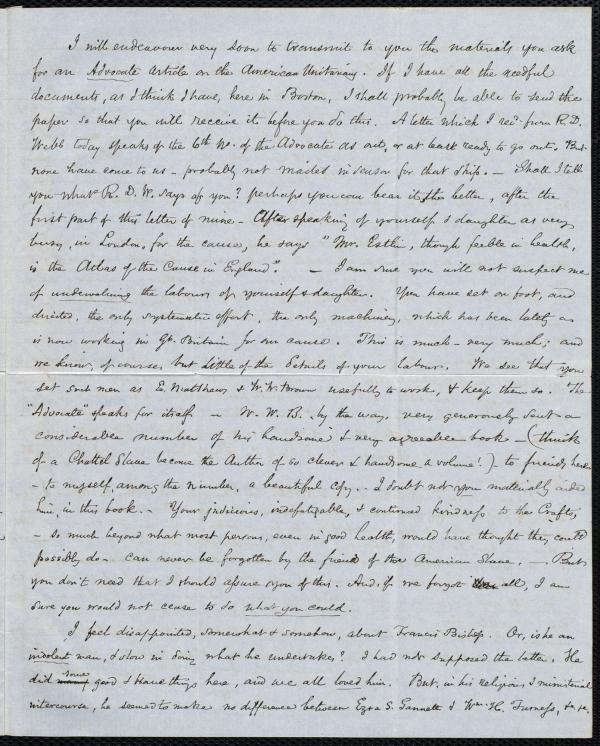 I will endeavour very soon to transmit to you the materials you ask
for an Advocate article on the American Unitarians. If I have all the needful
documents, as I think I have, here in Boston, I shall probably be able to send the
paper so that you will receive it before you do this. A letter which I recd. from R. D.
Webb today speaks of the 6th No. of the Advocate as out, or at least ready to go out. But
none have come to us - probably not mailed in season for that ship. - Shall I tell
you what R. D. W. says of you? perhaps you can bear it the better, after the
first part of this letter of mine - After speaking of yourself & daughter as very
busy, in London, for the cause, he says "Mr. Estlin, though feeble in health,
is the Atlas of the Cause in England". - I am sure you will not suspect me
of undervaluing the labours of yourself & daughter. You have set on foot, and
directed, the only systematic effort, the only machinery, which has been lately or
is now working in Gt. Britain for our cause. This is much - very much; and
we know, of course, but little of the details of your labours. We see that you
set such men as E. Matthews & W. W. Brown usefully to work, & keep them so. The
"Advocate" speaks for itself - W. W. B. by the way, very generously sent a
considerable number of his handsome & very agreeable book - (think
of a Chattel Slave become the Author of so clever & handsome a volume!) - to friends here
- to myself, among the number, a beautiful copy. - I doubt not you materially aided
him, in this book. - Your judicious, indefatigable, & continued kindness to the Crafts,
- so much beyond what most persons, even in good health, would have thought they could
possibly do - can never be forgotten by the friend of the American Slave. - But
you don't need that I should assure you of this. And, if we forgot all, I am
sure you would not cease to do what you could.
I feel disappointed, somewhat & somehow, about Francis Bishop. Or, is he an
indolent man, & slow in doing what he undertakes? I had not supposed the latter. He
did some good & brave things here, and we all loved him. But, in his religious & ministerial
intercourse, he seemed to make no difference between Ezra S. Gannett & Wm. H. Furness, &c. &c.